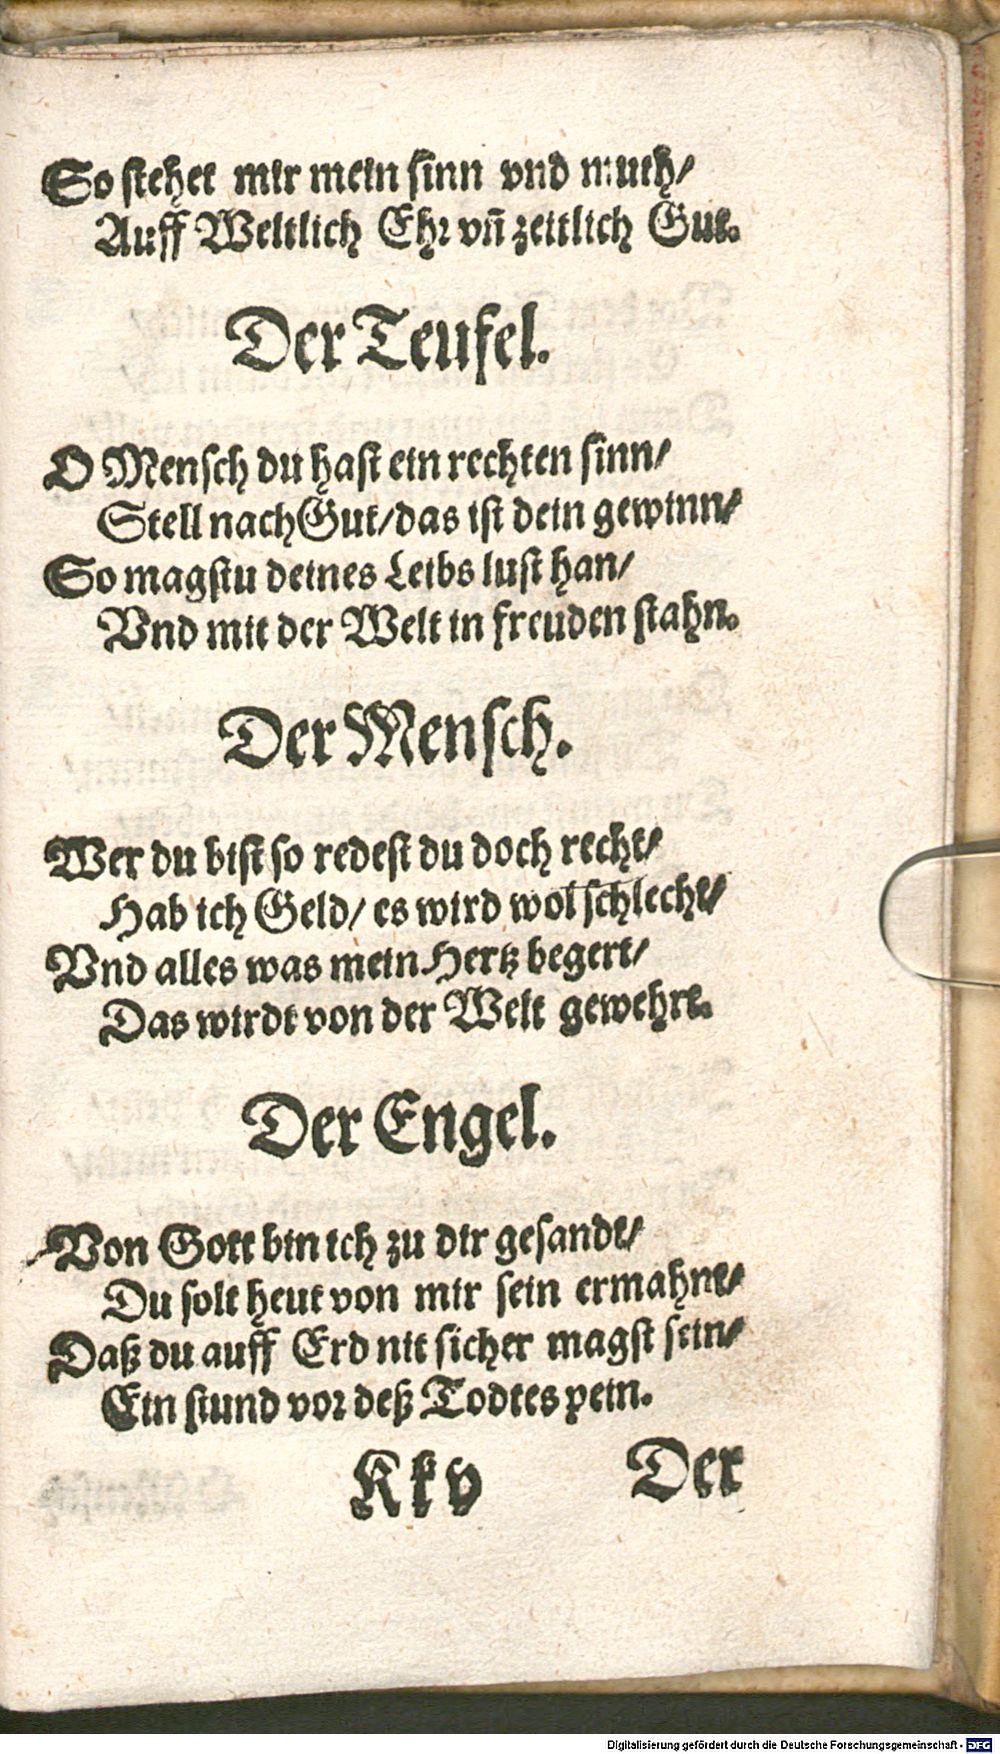 So stehet mir mein sinn vnd muth/
Auff Weltlich Ehr vñ zeitlich Gut.
Der Teufel.
O Mensch du hast ein rechten sinn/
Stell nach Gut/das ist dein gewinn/
So magstu deines Leibs lust han/
Vnd mit der Welt in freuden stahn.
Der Mensch.
Wer du bist so redest du doch recht/
Hab ich Geld/ es wird wol schlecht/
Vnd alles was mein Hertz begert/
Das wirdt von der Welt gewehrt.
Der Engel.
Von Gott bin ich zu dir gesandt/
Du solt heut von mir sein ermahnt/
Daß du auff Erd nit sicher magst sein/
Ein stund vor deß Todtes pein.
Kk v Der
Digitalisierung gefördert durch die Deutsche Forschungsgemeinschaft - DFG